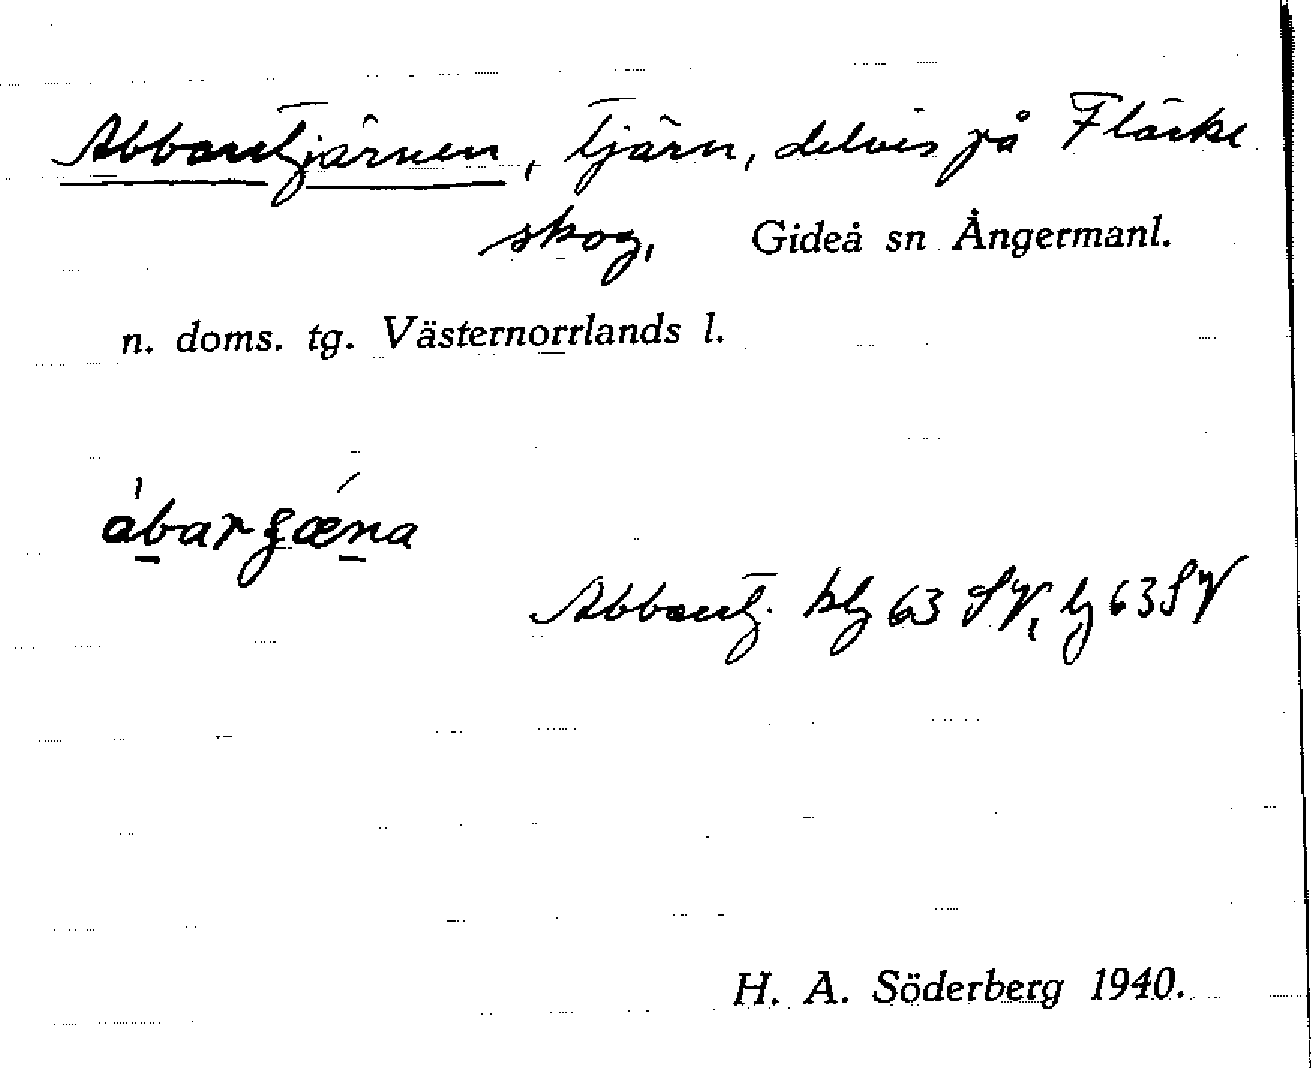 Abbastjärnen, tjärn, delvis på Fläcke
skog, Gideå sn Ångermanl.
n. doms. tg. Västernorrlands l.
Abbastj. klg 63 SV, lg 63 SV
H. A. Söderberg 1940.